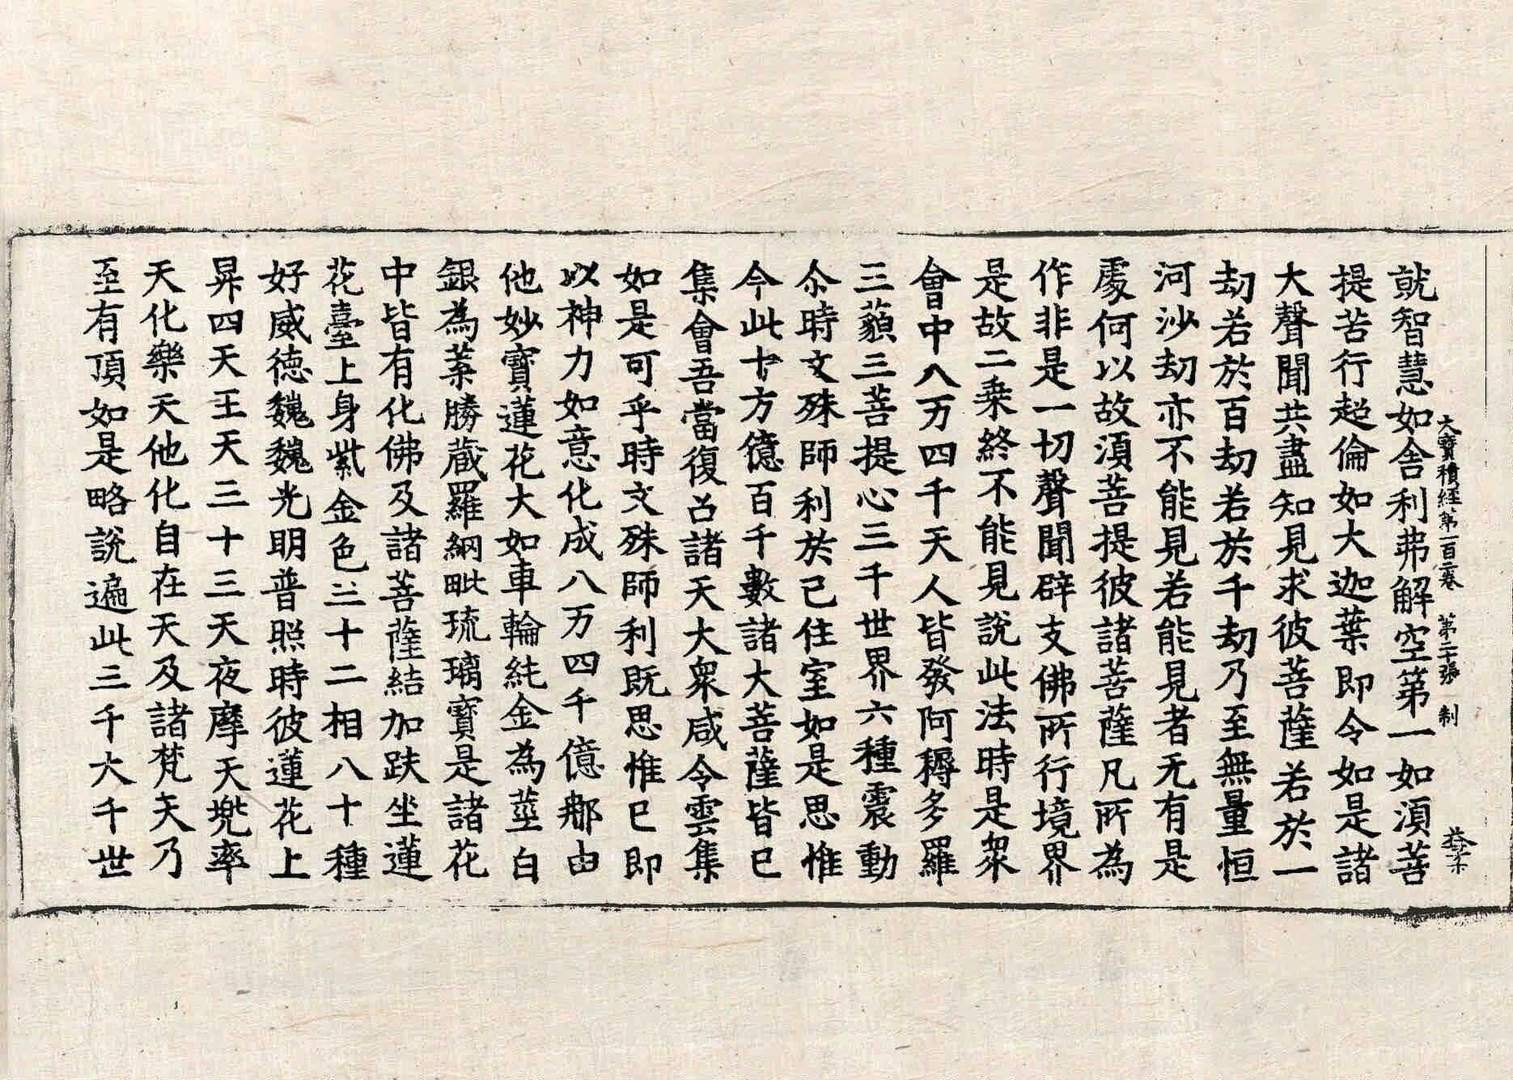 大寶積經第一百二卷　第二張　制
就智慧如舍利弗解空第一如湏菩
提苦行超倫如大迦葉即令如是諸
大聲聞共盡知見求彼菩薩若於一
劫若於百劫若於千劫乃至無量恒
河沙劫亦不能見若能見者无有是
處何以故湏菩提彼諸菩薩凡所為
作非是一切聲聞辟支佛所行境界
是故二乗終不能見說此法時是衆
會中八万四千天人皆發阿耨多羅
三藐三菩提心三千世界六種震動
尒時文殊師利於己住室如是思惟
今此十方億百千數諸大菩薩皆已
集會吾當復召諸天大衆咸令雲集
如是可乎時文殊師利既思惟已即
以神力如意化成八万四千億那由
他妙寶蓮花大如車輪純金為莖白
銀為葉勝蔵羅網毗琉璃寶是諸花
中皆有化佛及諸菩薩結加趺坐蓮
花臺上身紫金色三十二相八十種
好威德巍巍光明普照時彼蓮花上
昇四天王天三十三天夜摩天兠率
天化樂天他化自在天及諸梵天乃
至有頂如是略說遍此三千大千世